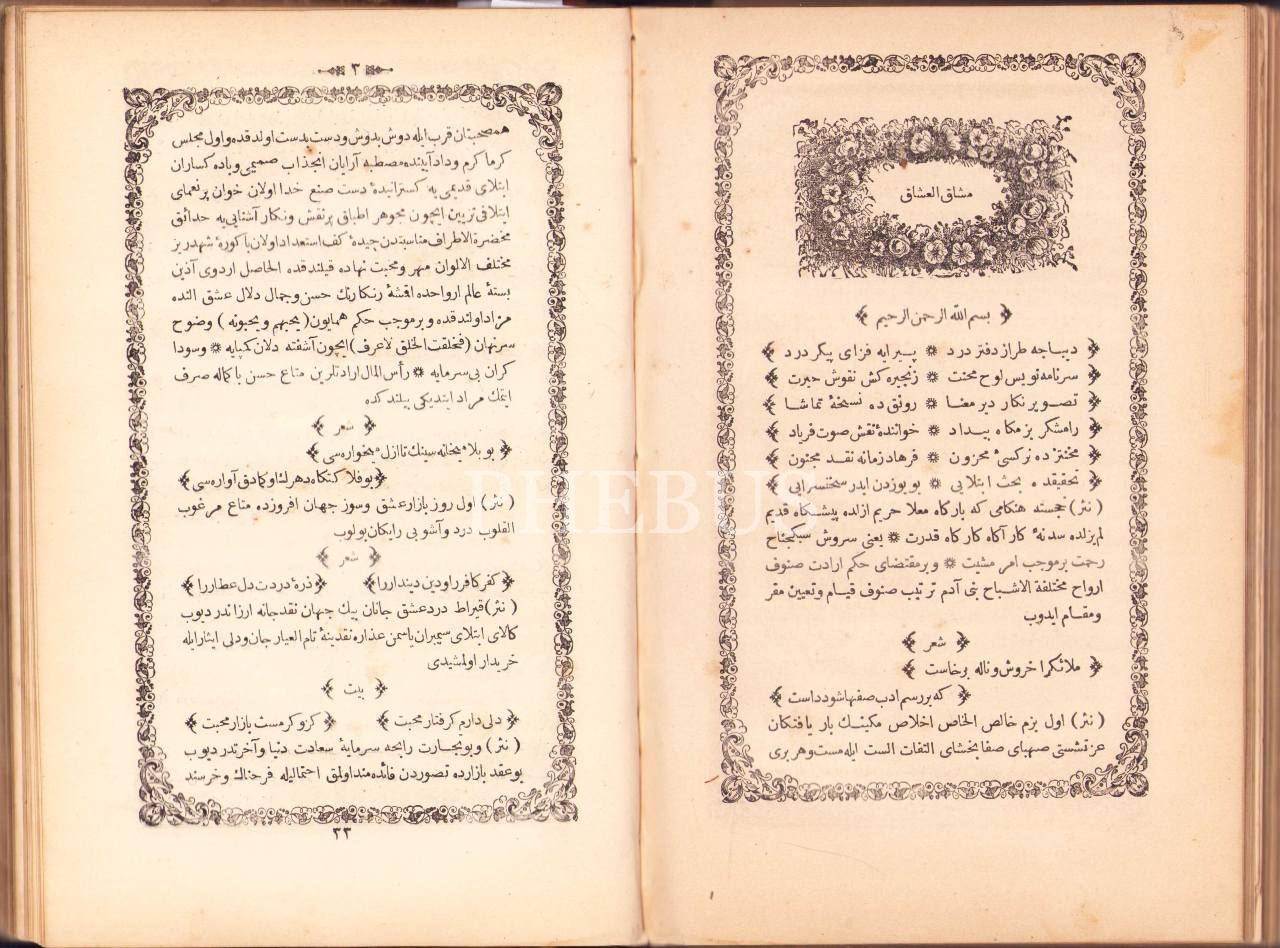 مشاق العشاق
بسم الله الرحمن الرحيم
ديباجه طراز دفتر درد ❋ پيرايه فزاى پيكر درد
سرنامه نويس لوح محنت ❋ زنجيره كش نقوش حيرت
تصوير نكار دير معنا ❋ رونق ده نسخهٔ تماشا
رامشكر بزمكاه بيداد ❋ خوانندهٔ نقش صوت فرياد
نركسئ محزون ❋ فرهاد زمانه نقد مجنون
تحقيقده بحث ابتلايى ❋ بو يوزدن ايدر سخنسرايى
( نثر ) خجسته هنكامى كه باركاه معلا حريم ازلده پيشكاه قديم
لم يزلده سدنهٔ كار آكاه كاركاه قدرت ❋ يعنى سروش سبكجناح
رحمت بر موجب امر مشيت ❋ و بر مقتضاى حكم ارادت صنوف
ارواح مختلفة الاشباح بنى آدم ترتيب صنوف قيام وتعيين مقر
ومقام ايدوب
شعر
ملائكرا خروش وناله برخاست
كه بر رسم ادب صفها شود راست
( نثر ) اول بزم خالص الخاص اخلاص مكينك بار يافتكان
عز نشستى صهباى صفابخشاى التفات الست ايله مست وهر برى
٣
همصحبتان قرب ايله دوش بدوش ودست بدست اولدقده واول مجلس
كرما كرم ودادآيينده مصطبه آرايان انجذاب صميمى وباده كساران
ابتلاى قديمى يه كسترانيدهٔ دست صنع خدا اولان خوان پر نعماى
ايتلافى تزيين ايچون مجوهر اطباق پر نقش ونكار آشنايى يه حدائق
مخضرة الاطراف مناسبتدن چيدهٔ كف استعداد اولان باكورهٔ شهدريز
مختلف الالوان مهر ومحبت نهاده قيلندقده الحاصل اردوى آذين
بستهٔ عالم ارواحده اقشهٔ رنكارنك حسن وجمال دلال عشق النده
مزاد اولندقده و بر موجب حكم همايون ( يحبهم ويحبونه ) وضوح
سرنهان ( فخلقت الخلق لاعرف ) ايچون آشفته دلان كمپايه ❋ وسودا
كران بى سرمايه ❋ رأس المال ارادتلرين متاع حسن باكماله صرف
ايتمك مراد ايتديكى بيلندكده
شعر
بو بلا ميخانه سينك تا ازل ميخواره سى
بو فلاكتكاه دهرك اوكمادق آواره سى
( نثر ) اول روز بازار عشق وسوز جهان افروزده متاع مرغوب
القلوب درد وآشوبى رايكان بولوب
شعر
كفر كافر را ودين ديندار را
ذرهٔ دردت دل عطار را
( نثر ) قيراط درد عشق جانان بيك جهان نقد جانه ارزاندر ديوب
كالاى ابتلاى سيمبران ياسمن عذاره نقدينهٔ تام العيار جان ودلى ايثار ايله
خريدار اولمشيدى
بيت
دلى دارم كرفتار محبت
كزو كرمست بازار محبت
( نثر ) وبو تجارت رابحه سرمايهٔ سعادت دنيا وآخرتدر ديوب
بو عقد بازارده تصوردن فائده مند اولمق احتماليله فرحناك وخرسند
٢٣
PHEBUS